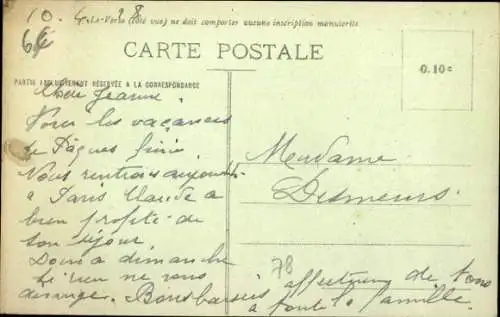 10. 4. 28
Le Verso (côté vue) ne doit comporter aucune inscription manuscrite
6€
CARTE POSTALE
PARTIE EXCLUSIVEMENT RÉSERVÉE A LA CORRESPONDANCE
0.10c
Jeanne,
Voici les vacances
de Pâques finies.
Nous rentrions aujourd'hui
à Paris Claude a
bien profité de
son séjour.
Donc à dimanche
Si rien ne vous
dérange. Bons baisers
Madame
Desmeurs
78
affectueux de tous
à toute la famille.